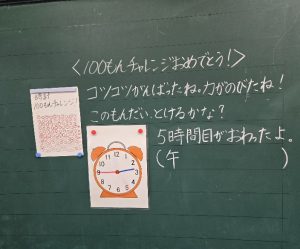 〈100もんチャレンジおめでとう!〉
コツコツがんばったね。力がのびたね!
このもんだい、とけるかな?
5時間目がおわったよ。
(午　　　　　　)
100もんチャレンジ
12
1
2
3
4
5
6
7
8
9
10
11